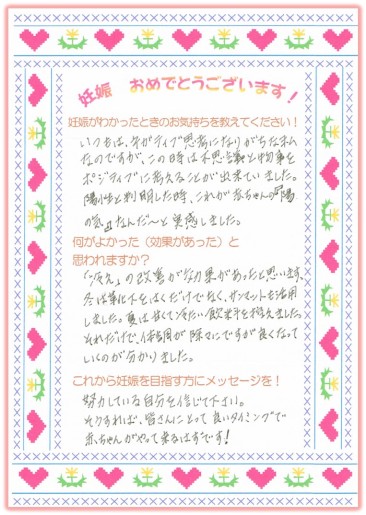 妊娠 おめでとうございます！
妊娠がわかったときのお気持ちを教えてください！
いつもは、ネガティブ思考になりがちな私
なのですが、この時は不思議と物事を
ポジティブに考えることが出来ていました。
陽性と判明した時、これが赤ちゃんの『陽
の気』なんだ〜と実感しました。
何がよかった（効果があった）と
思われますか？
「冷え」の改善が効果があったと思います。
冬は靴下をはくだけでなく、サンマットも活用
しました。夏は甘くて冷たい飲み物を控えました。
それだけで、体調が徐々にですが良くなって
いくのが分かりました。
これから妊娠を目指す方にメッセージを！
努力している自分を信じて下さい。
そうすれば、皆さんにとって良いタイミングで
赤ちゃんがやって来るはずです！